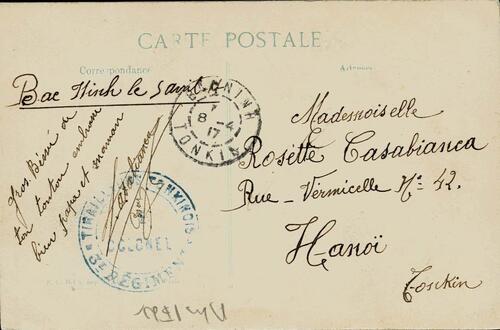 CARTE POSTALE
Correspondance
Adresse
Bac Ninh le
BAC-NINH
8 -4
17
TONKIN
Mademoiselle
Rosette Casabianca
Rue - Vermicelle No. 42.
Hanoï
Tonkin
Gros Bébé de
ton tonton embrasse
bien papa et maman
Casabianca
TIRAILLEURS TONKINOIS
COLONEL
3E RÉGIMENT